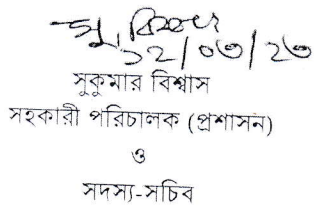 সু, বিশ্বাস
১২/০৩/২৩
সুকুমার বিশ্বাস
সহকারী পরিচালক (প্রশাসন)
ও
সদস্য-সচিব